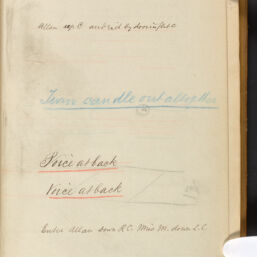 Allan up C
Turn candle out altogether
Voice at back
Voice at back
Enter Allan down R.C. Miss M. down L.C.